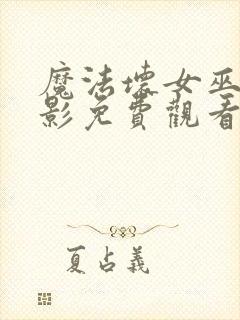 魔法壞女巫
影免費觀看
夏占義